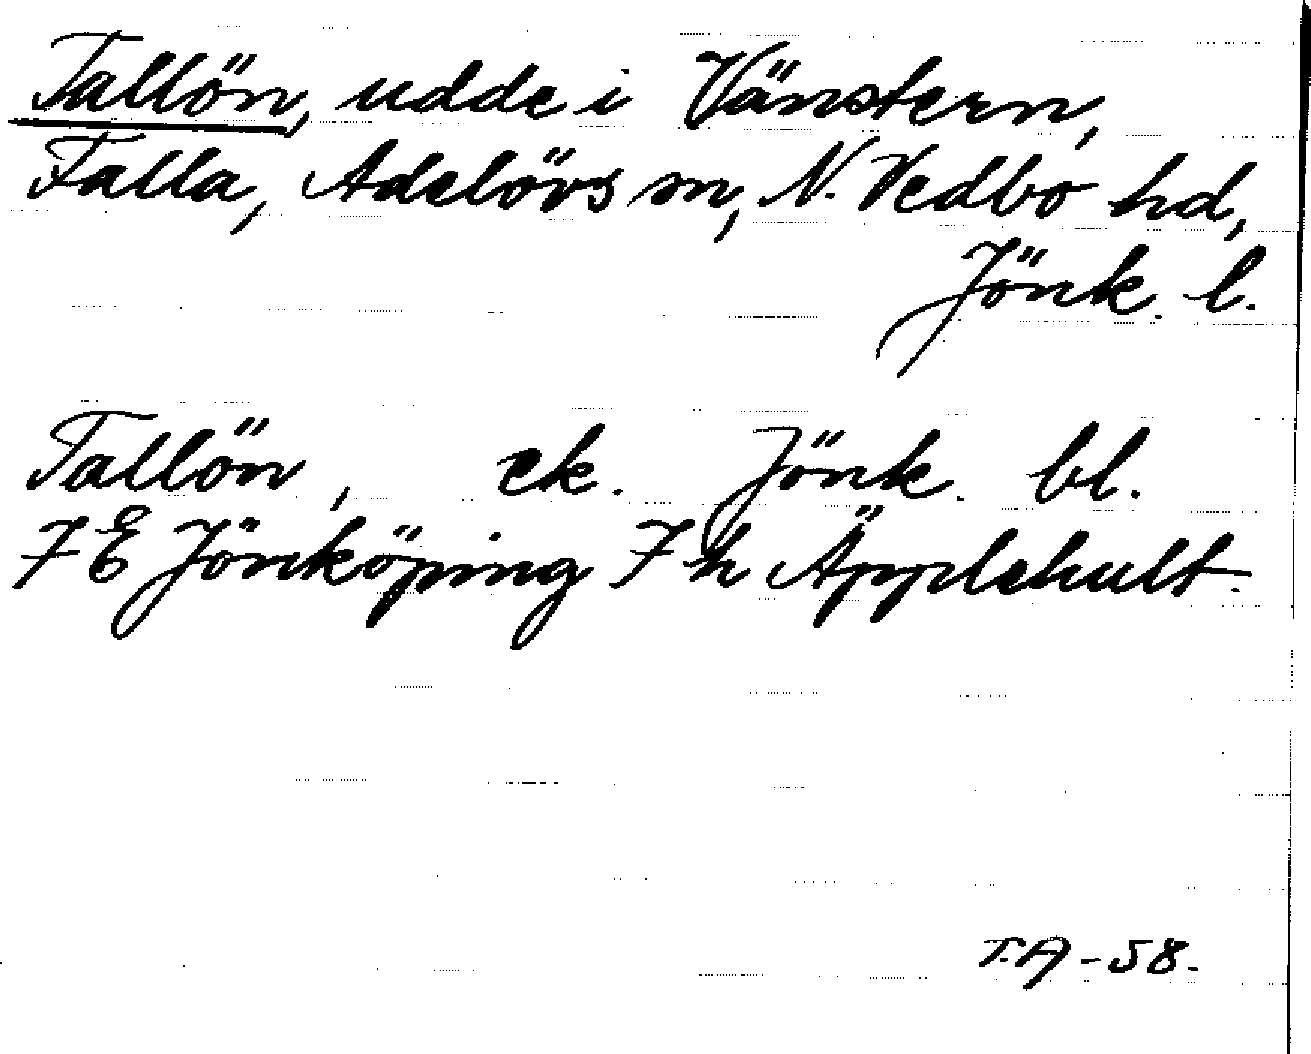 Tallön, udde i Vänstern,
Falla, Adelövs sn, N. Vedbo hd,
Jönk. l.
Tallön, ek. Jönk. bl.
7 E Jönköping 7 h Äpplehult.
T.A-58.